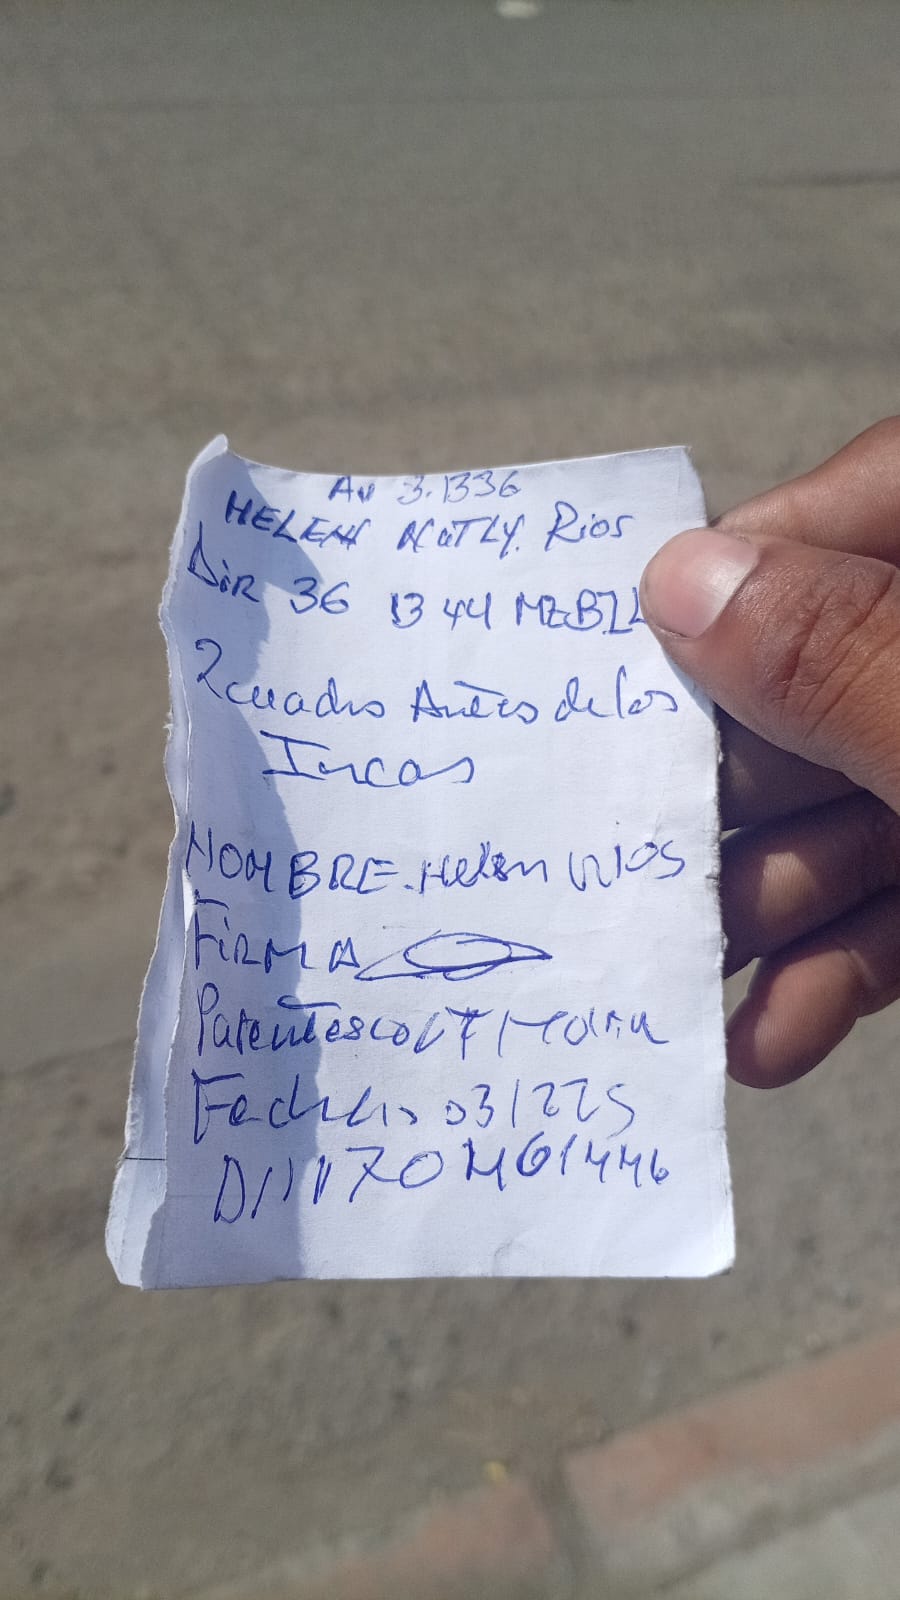 Av 3.1336
HELEN NaTLY. Rios
DiR 36 1344 MZBIL
2 cuadrs Antes de los
Incas
NOMBRE. Helen rios
FiRMA
Parentesco
Fecha 03/225